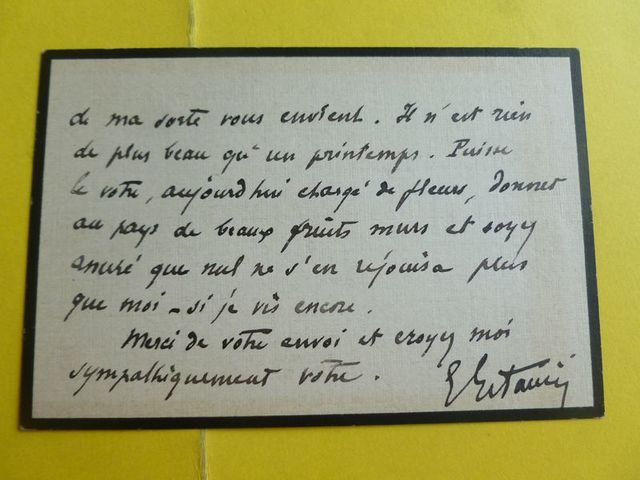 de ma sorte vous envient. Il n'est rien
de plus beau qu'un printemps. Puisse
le votre, aujourd'hui chargé de fleurs, donner
au pays de beaux fruits murs et soyez
assuré que nul ne s'en réjouira plus
que moi - si je vis encore.
Merci de votre envoi et croyez moi
sympathiquement votre.